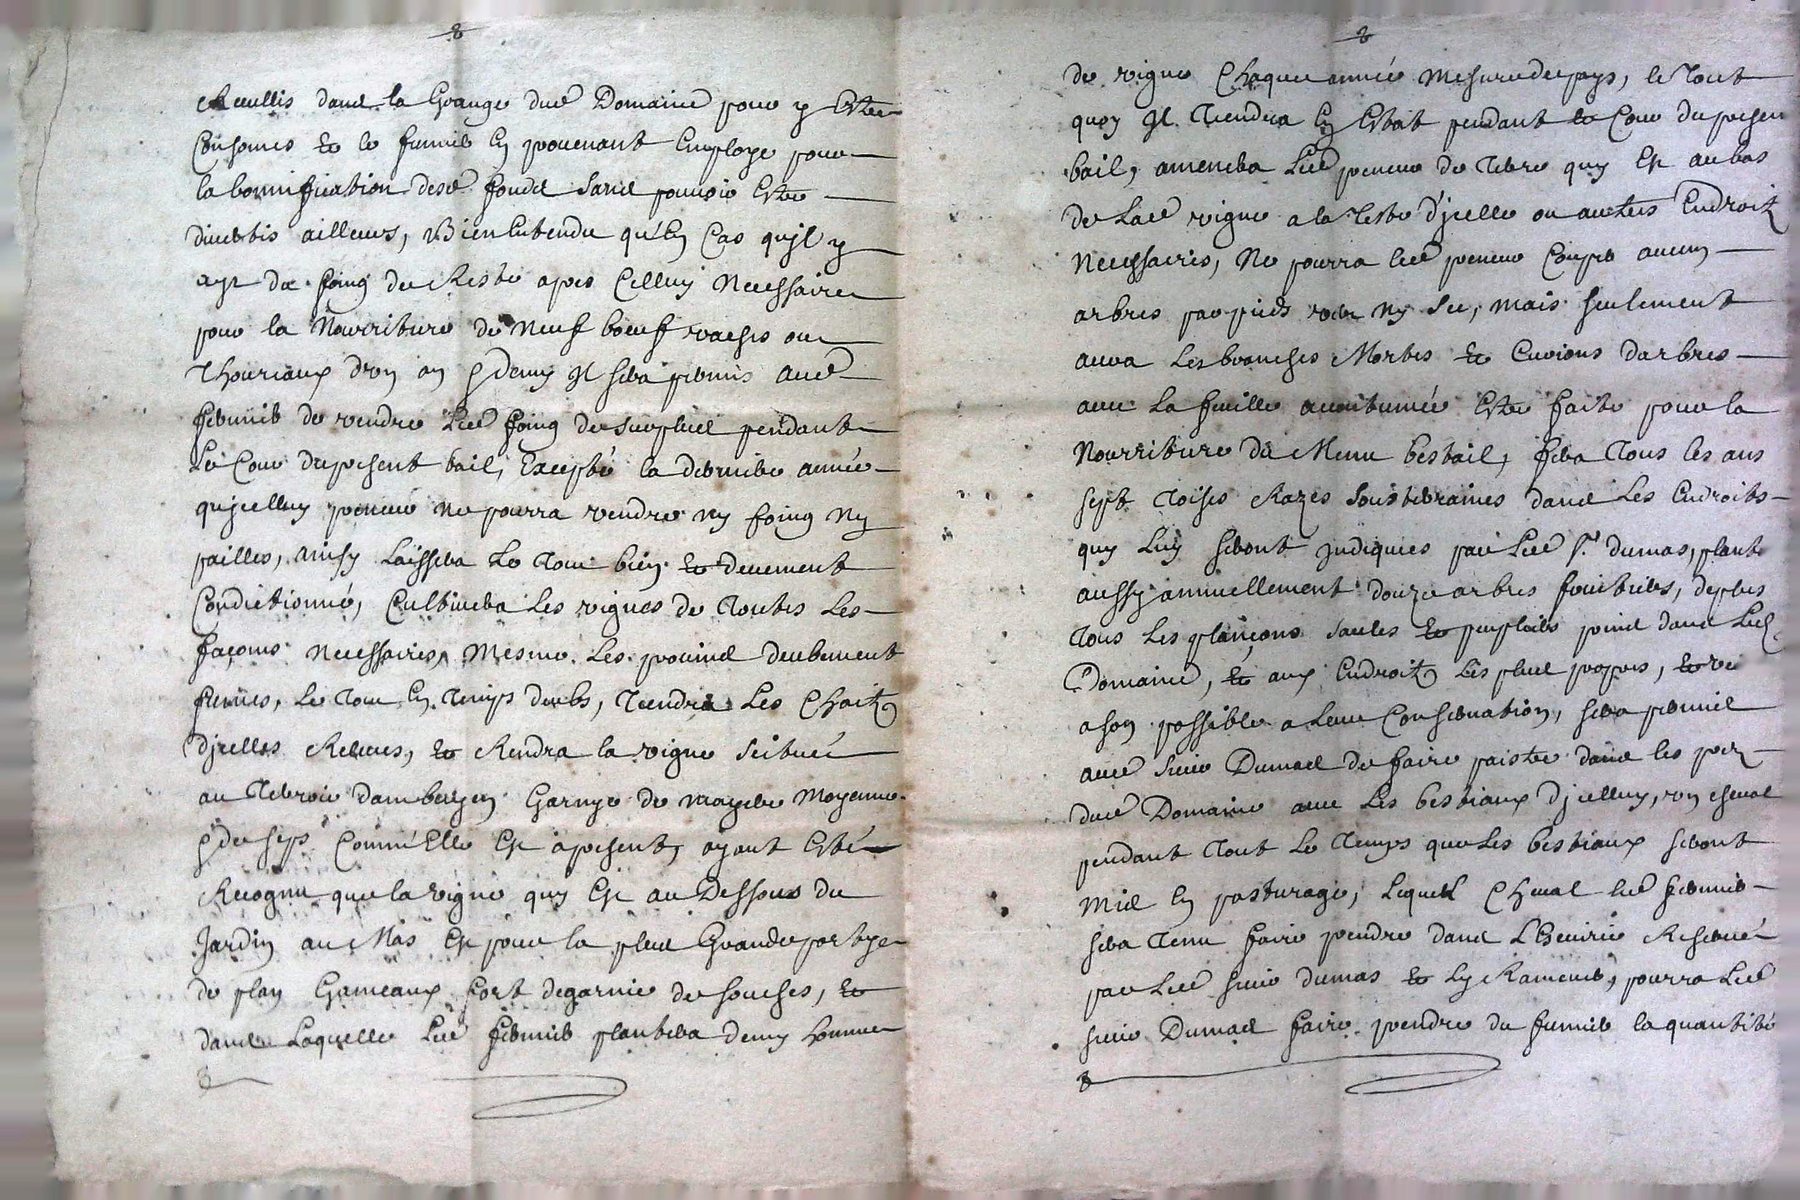 Recullis dans la Grange dud Domaine pour y Estre
Consomés et le fumier En prouenant Employé pour
la bonniffication desd fonds sans pouuoir Estre
diuertis ailleurs, Bien Entendu qu'En Cas qu'jl y
ayt du foing de Reste apres Celluy Necessaire
pour la Nourriture de Neuf boeuf vaches ou
Thoureaux d'vn an & demy Jl sera permis aud
fermier de vendre Led foing de surplus pendant
Le Cour du present bail, Excepté la derniere année
qu'jcelluy preneur ne pourra vendre ny foing Ny
pailles, ainsy Laissera Le Tout bien et deuement
Condictionné, Cultiuera Les vignes de Toutes Les
façons Necessaires, Mesme Les prouins deubement
fumés, Le Tout En Temps deubs, Tiendra Les Chaitz
d'jcelles Releués, et Rendra la vigne scituée
au Terroir d'ambergen Garnye de mayere Moyenne
& de seps Comm'Elle Est àpresent, ayant Esté
Recognu que la vigne quy Est au Dessous du
Jardin au Mas Est pour la plus Grande partye
de plan Gameaux fort degarnie de souches, et
dans Laquelle Led fermier plantera demy homme
de vigne Chaque année Mesure du pays, le Tout
quoy Jl Tiendra En Estat pendant le Cour du present
bail, amenera Led preneur de Terre quy Est au bas
de Lad vigne a la Teste d'jcelle ou autres Endroitz
Necessaires, Ne pourra led preneur Couper aucun
arbres par pieds verd ny sec, mais seulement
aura Les branches Mortes et Enuions d'arbres
auec La feuille accoutumée Estre faite pour la
Nourriture du Menu bestail, fera Tous les ans
sept Toises Razes Sousterraines dans Les Endroits
quy Luy seront jndiqués par Led Sr dumas, plantera
aussy annuellement douze arbres fruitiers, de plus
Tous Les plançons saules et peupliers prins dans Led
Domaine, et aux Endroitz Les plus propres,
a son possible a Leur Conseruation, sera permis
aud sieur Dumas de faire paistre dans les prez
dud Domaine auec Les bestiaux d'jcelluy, vn cheual
pendant Tout Le Temps que Les bestiaux seront
mis En pasturage, Lequel Cheual led fermier
sera Tenu faire prendre dans L'Escuirie Reseruée
par Led sieur dumas et L'y Ramener, pourra Led
sieur Dumas faire prendre du fumier la quantité